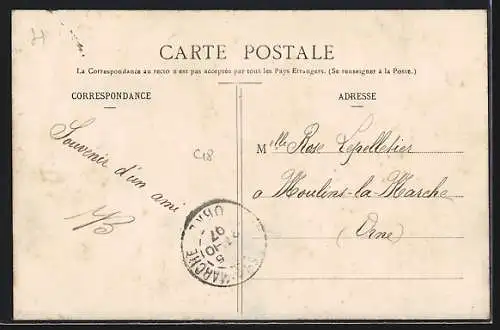 CARTE POSTALE
La Correspondance au recto n'est pas acceptée par tous les Pays Étrangers. (Se renseigner à la Poste.)
CORRESPONDANCE
ADRESSE
Souvenir d'un ami
C18
Mlle Rose Lepelletier
à Moulins-la-Marche
(Orne)
MARCHE
ORNE
5
-10
07